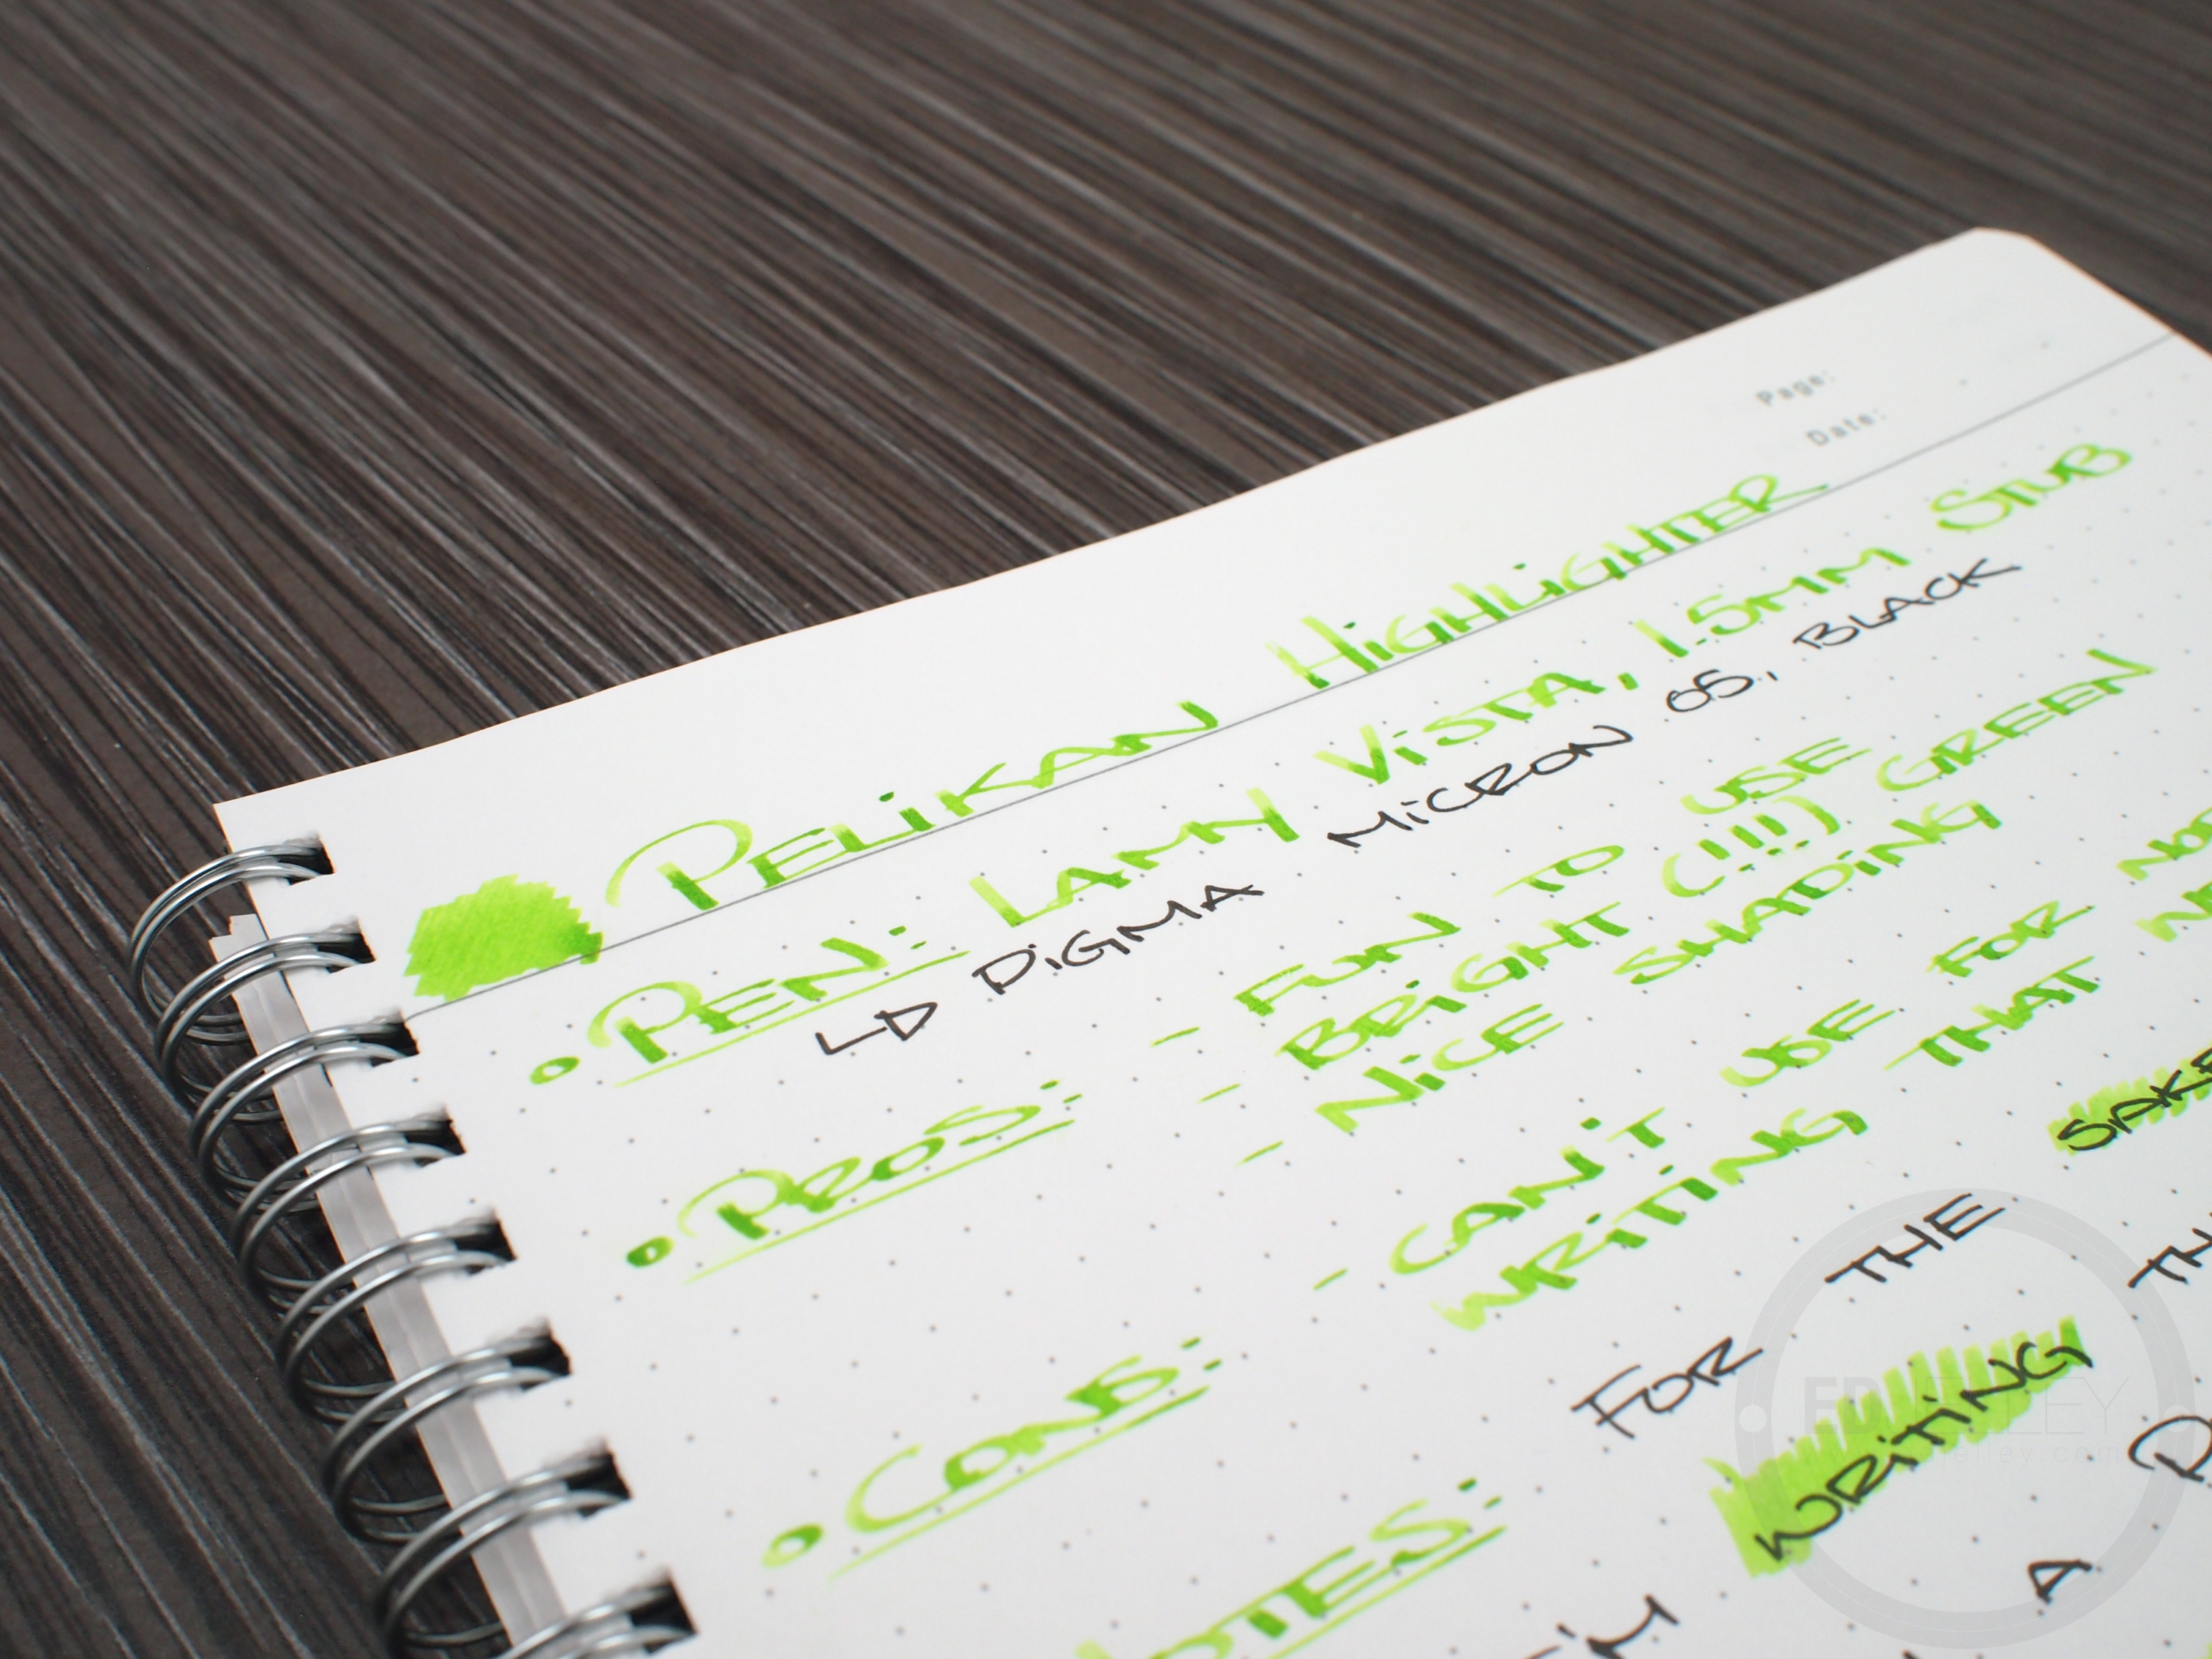 Page:
Date:
PELiKAN HiGHLiGHTER
• PEN: LAMY ViSTA, 1.5MM STUB
PiGMA MiCRON 05, BLACK
• PROS: - FUN TO USE
- BRiGHT (!!!) GREEN
- NiCE SHADiNG
• CONS: - CAN'T USE FOR
WRiTiNG THAT
FOR THE SAKE
WRiTiNG
I'M A